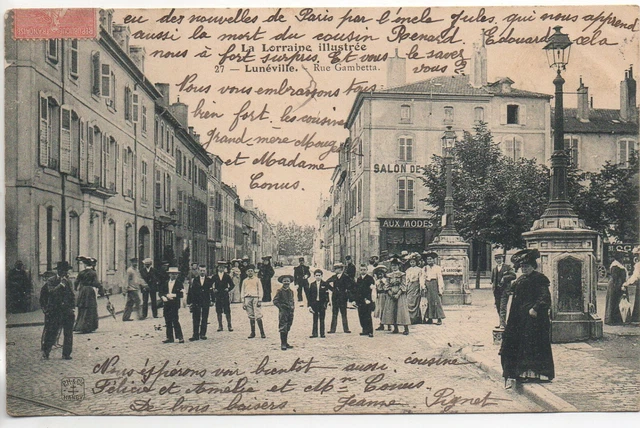 eu des nouvelles de Paris par l'oncle Jules, qui nous apprend
aussi la mort du cousin Edouard, cela
La Lorraine illustrée
nous a fort surpris. Et vous le saver
27 - Lunéville. Rue Gambetta.
vous?
Nous vous embrassons tous
bien fort. les cousines
grand-mère
et Madame
Conus.
SALON DE
AUX MODES
Nous espérons voir bientot aussi cousine
Félicie et Amélie et Mn Conus
De bons baisers Jeanne Pignet